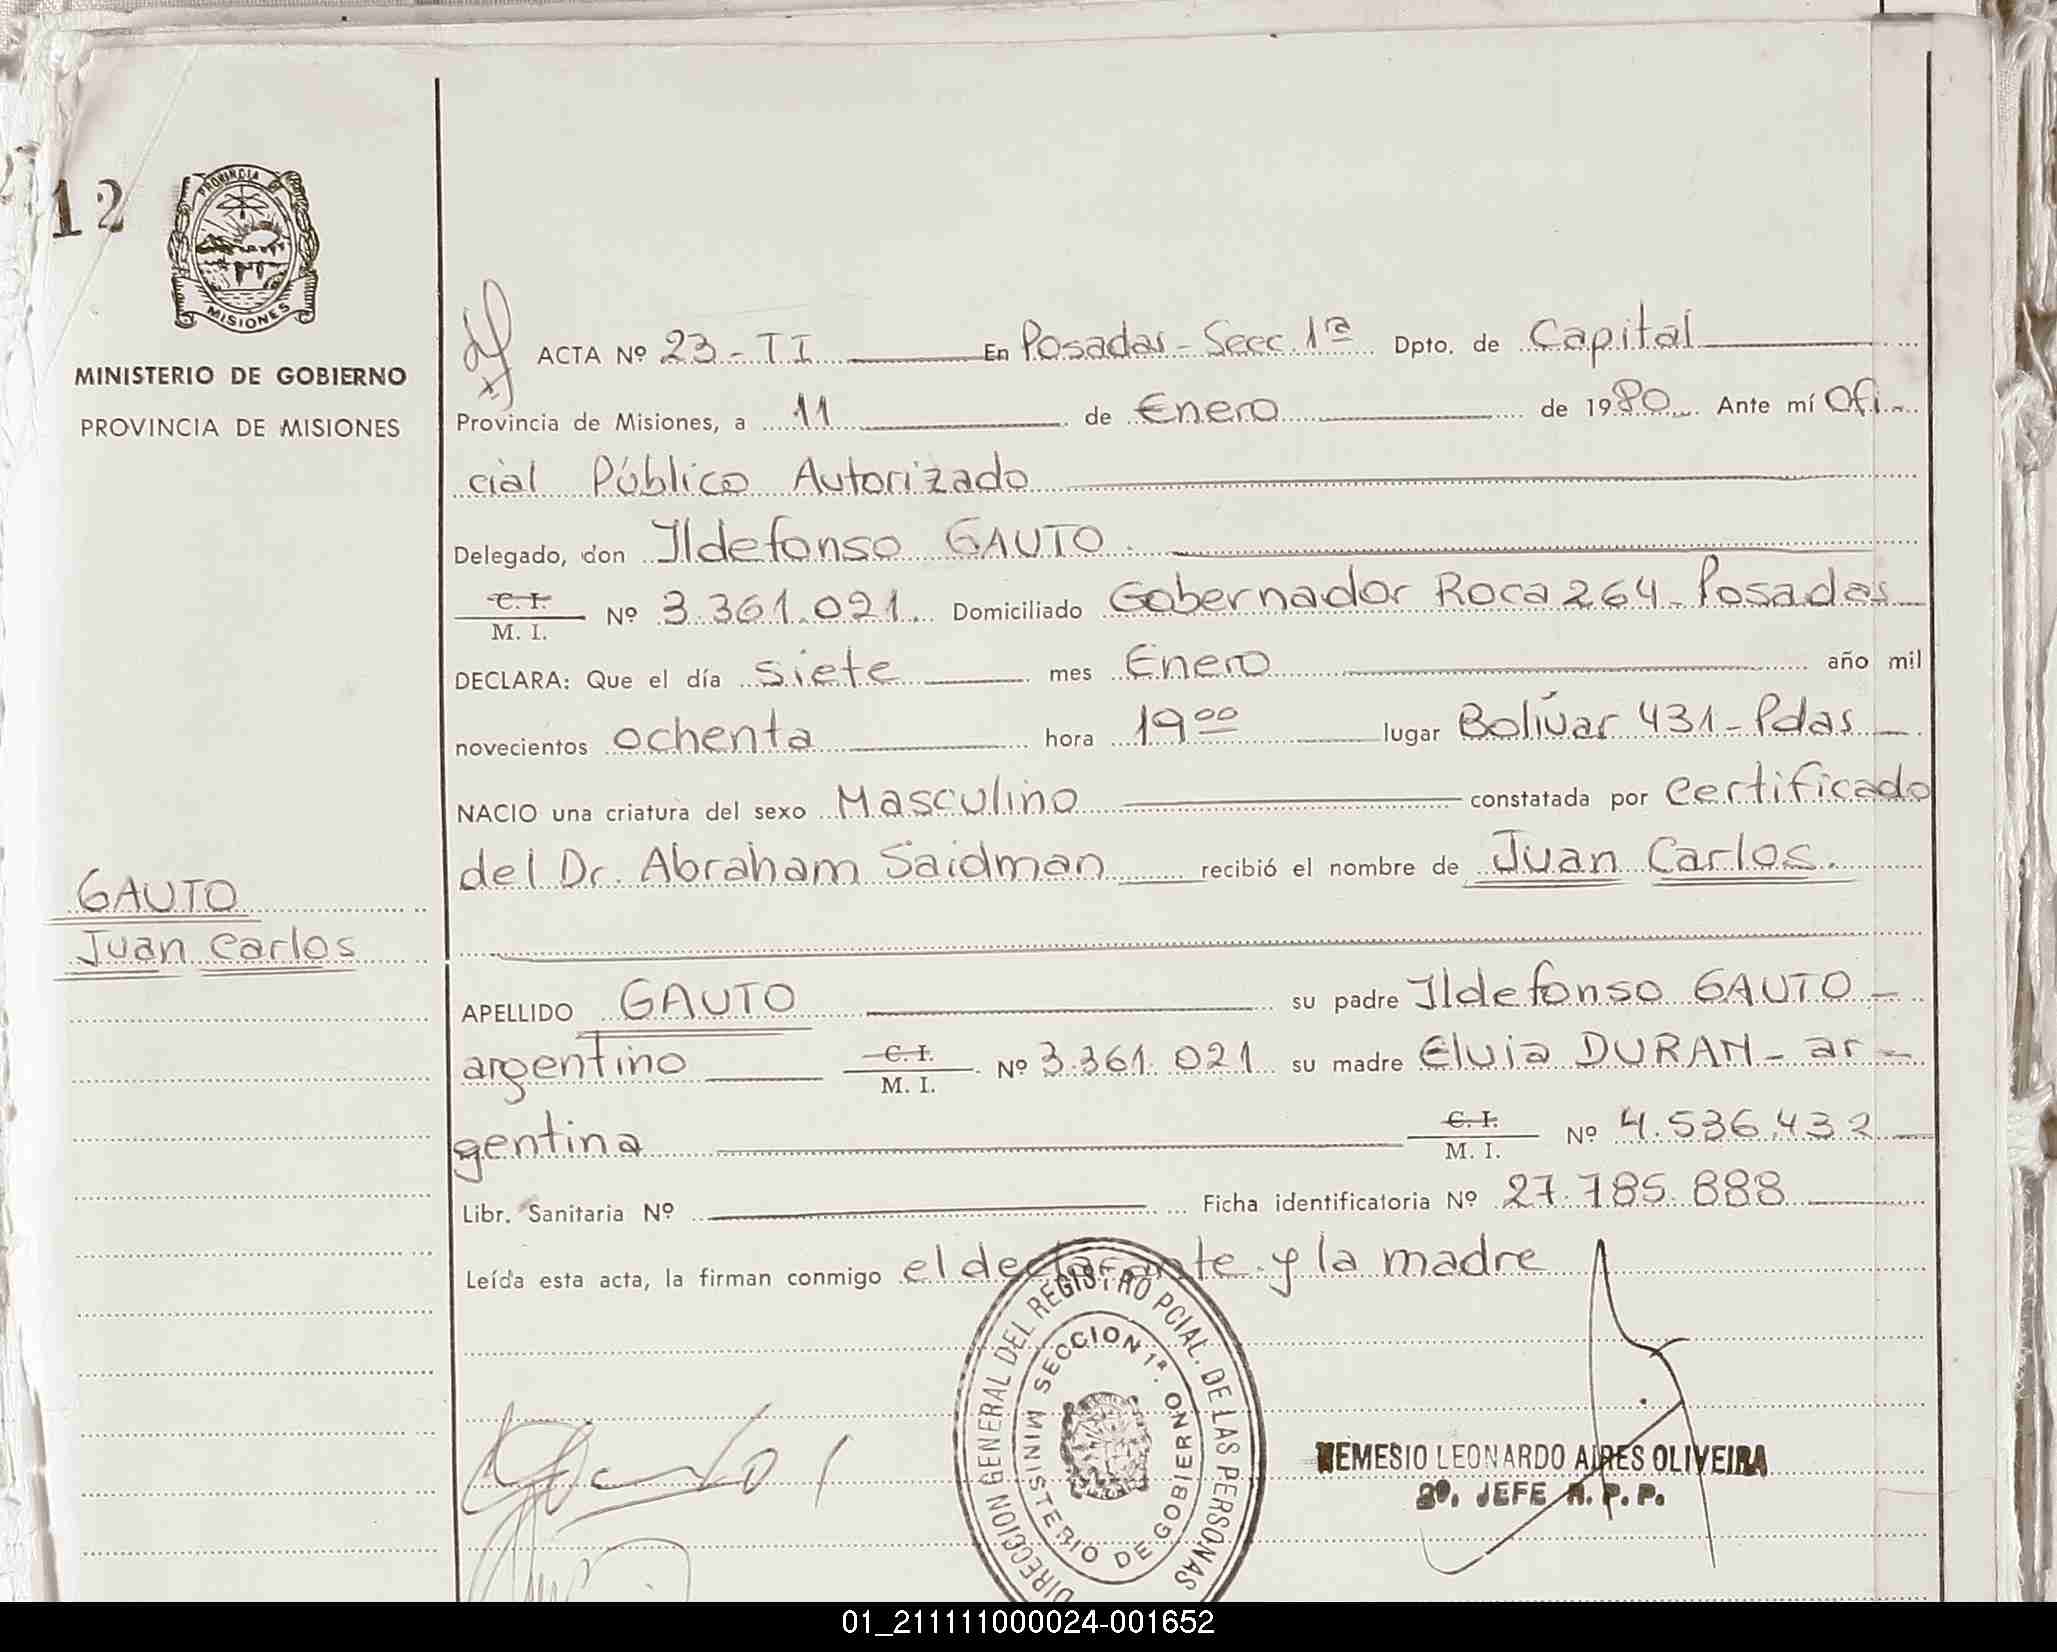 12
PROVINCIA DE
MISIONES
MINISTERIO DE GOBIERNO
PROVINCIA DE MISIONES
ACTA Nº 23 - TI En Posadas - Secc 1ª Dpto. de Capital
Provincia de Misiones, a 11 de Enero de 1980 Ante mí Ofi-
cial Público Autorizado
Delegado, don Ildefonso GAUTO
C. I.
M. I. Nº 3.361.021 Domiciliado Gobernador Roca 264 - Posadas
DECLARA: Que el día siete mes Enero año mil
novecientos ochenta hora 19⁰⁰ lugar Bolívar 431 - Pdas
NACIO una criatura del sexo Masculino constatada por Certificado
del Dr. Abraham Saidman recibió el nombre de Juan Carlos.
GAUTO
Juan Carlos
APELLIDO GAUTO su padre Ildefonso GAUTO -
argentino C. I. M. I. Nº 3.361.021 su madre Elvia DURAN - ar -
gentina C. I. M. I. Nº 4.536.432
Libr. Sanitaria Nº Ficha identificatoria Nº 27.785.888
Leída esta acta, la firman conmigo el declarante y la madre
DIRECCION GENERAL DEL REGISTRO PCIAL. DE LAS PERSONAS
SECCION 1ª.
MINISTERIO DE GOBIERNO
NEMESIO LEONARDO AIRES OLIVEIRA
2º. JEFE R. P. P.
01_211111000024-001652